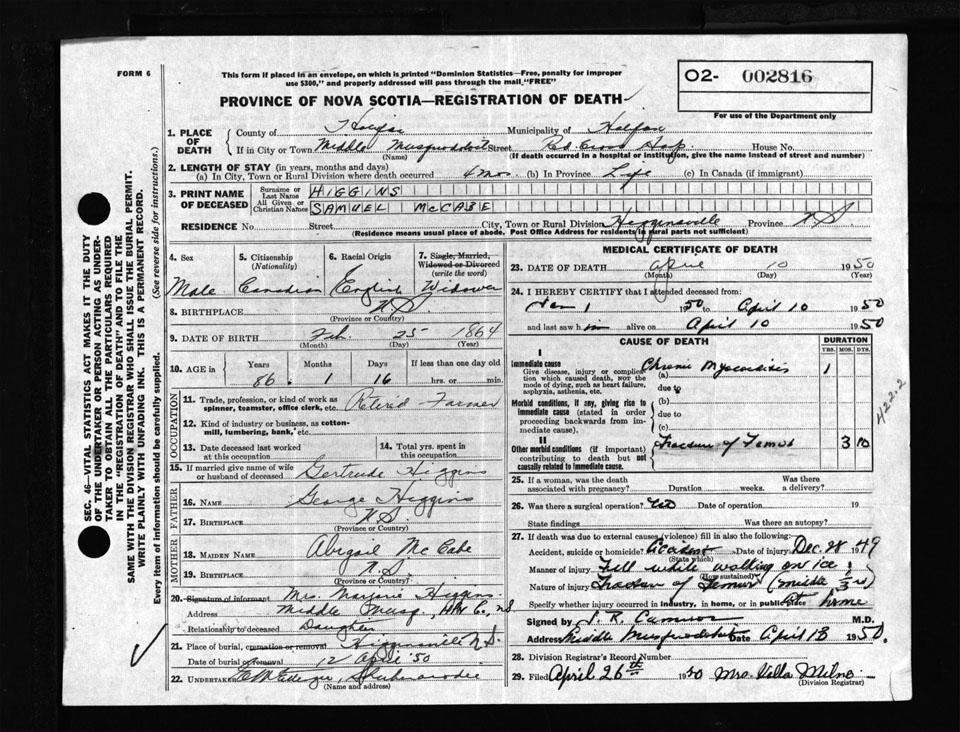 FORM 6
This form if placed in an envelope, on which is printed "Dominion Statistics—Free, penalty for improper
use $300," and properly addressed will pass through the mail "FREE"
O2- 002816
PROVINCE OF NOVA SCOTIA—REGISTRATION OF DEATH
For use of the Department only
1. PLACE OF DEATH County of Halifax Municipality of Halifax
If in City or Town Middle Musquodoboit Street Red Cross Hosp House No.
(Name) (If death occurred in a hospital or institution, give the name instead of street and number)
2. LENGTH OF STAY (in years, months and days)
(a) In City, Town or Rural Division where death occurred 4 mos. (b) In Province Life (c) In Canada (if immigrant)
3. PRINT NAME OF DECEASED Surname or Last Name HIGGINS
All Given or Christian Names SAMUEL McCABE
RESIDENCE No. Street City, Town or Rural Division Higginsville Province N.S.
(Residence means usual place of abode. Post Office Address for residents in rural parts not sufficient)
4. Sex 5. Citizenship (Nationality) 6. Racial Origin 7. Single, Married, Widowed or Divorced (write the word)
Male Canadian English Widower
8. BIRTHPLACE N.S.
(Province or Country)
9. DATE OF BIRTH Feb. 25 1864
(Month) (Day) (Year)
10. AGE in Years Months Days If less than one day old
86 1 16 hrs. or min.
OCCUPATION
11. Trade, profession, or kind of work as spinner, teamster, office clerk, etc. Retired Farmer
12. Kind of industry or business, as cotton-mill, lumbering, bank, etc.
13. Date deceased last worked at this occupation 14. Total yrs. spent in this occupation
15. If married give name of wife or husband of deceased Gertrude Higgins
FATHER
16. NAME George Higgins
17. BIRTHPLACE N.S.
(Province or Country)
MOTHER
18. MAIDEN NAME Abigail McCabe
19. BIRTHPLACE N.S.
(Province or Country)
20. Signature of informant Mrs. Marjorie Higgins
Address Middle Musq., Hfx Co., N.S.
Relationship to deceased Daughter
21. Place of burial, cremation or removal Higginsville N.S.
Date of burial or removal 12 April '50
22. UNDERTAKER
(Name and address)
MEDICAL CERTIFICATE OF DEATH
23. DATE OF DEATH April 10 1950
(Month) (Day) (Year)
24. I HEREBY CERTIFY that I attended deceased from:
Jan 1 1950 to April 10 1950
and last saw him alive on April 10 1950
CAUSE OF DEATH DURATION
YRS. MOS. DYS.
I
Immediate cause
Give disease, injury or complication which caused death, not the mode of dying, such as heart failure, asphyxia, asthenia, etc.
(a) Chronic Myocarditis 1
due to
Morbid conditions, if any, giving rise to immediate cause (stated in order proceeding backwards from immediate cause).
(b)
due to
(c)
II
Other morbid conditions (if important) contributing to death but not causally related to immediate cause.
Fracture of Femur 3 10
422.2
25. If a woman, was the death associated with pregnancy? Duration weeks. Was there a delivery?
26. Was there a surgical operation? Date of operation 19
State findings Was there an autopsy?
27. If death was due to external causes (violence) fill in also the following:
Accident, suicide or homicide? Accident Date of injury Dec. 28 1949
(State which)
Manner of injury Fell while walking on ice
(How sustained)
Nature of injury Fracture of Femur (middle 1/3 rd)
Specify whether injury occurred in industry, in home, or in public place At home
Signed by M.D.
Address Middle Musquodoboit Date April 13 1950.
28. Division Registrar's Record Number
29. Filed April 26th 1950 Mrs. Milne
(Division Registrar)
SEC. 46—VITAL STATISTICS ACT MAKES IT THE DUTY
OF THE UNDERTAKER OR PERSON ACTING AS UNDER-
TAKER TO OBTAIN ALL THE PARTICULARS REQUIRED
IN THE "REGISTRATION OF DEATH" AND TO FILE THE
SAME WITH THE DIVISION REGISTRAR WHO SHALL ISSUE THE BURIAL PERMIT.
WRITE PLAINLY WITH UNFADING INK. THIS IS A PERMANENT RECORD.
Every item of information should be carefully supplied. (See reverse side for instructions.)